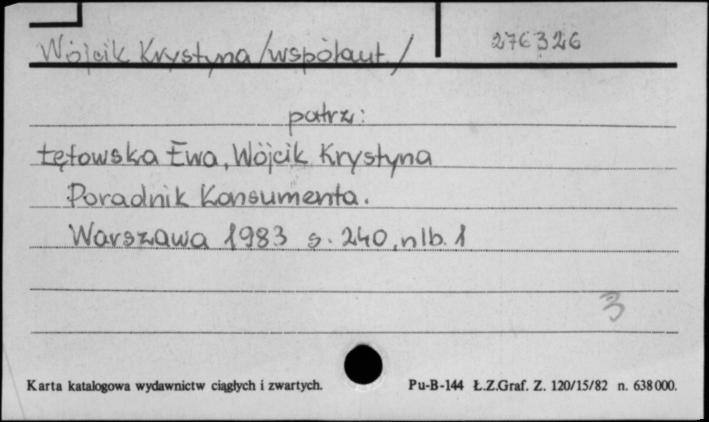 276326
Wójcik Krystyna /współaut./
patrz:
Łętowska Ewa, Wójcik Krystyna
Poradnik Konsumenta.
Warszawa 1983 s. 240, nlb. 1
3
Karta katalogowa wydawnictw ciągłych i zwartych. Pu-B-144 Ł.Z.Graf. Z. 120/15/82 n. 638000.